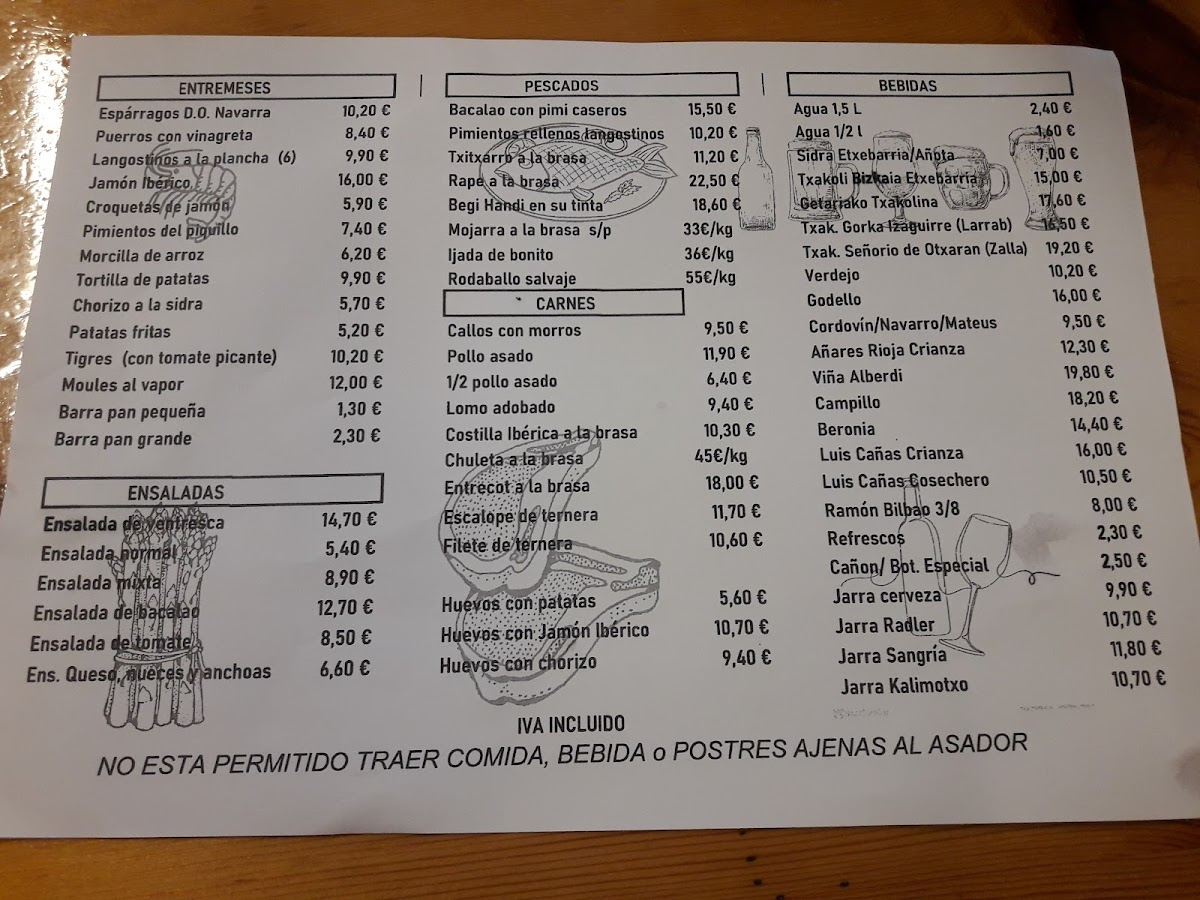 ENTREMESES
Espárragos D.O. Navarra 10,20 €
Puerros con vinagreta 8,40 €
Langostinos a la plancha (6) 9,90 €
Jamón Ibérico 16,00 €
Croquetas de jamón 5,90 €
Pimientos del piquillo 7,40 €
Morcilla de arroz 6,20 €
Tortilla de patatas 9,90 €
Chorizo a la sidra 5,70 €
Patatas fritas 5,20 €
Tigres (con tomate picante) 10,20 €
Moules al vapor 12,00 €
Barra pan pequeña 1,30 €
Barra pan grande 2,30 €
ENSALADAS
Ensalada de ventresca 14,70 €
Ensalada normal 5,40 €
Ensalada mixta 8,90 €
Ensalada de bacalao 12,70 €
Ensalada de tomate 8,50 €
Ens. Queso, nueces y anchoas 6,60 €
PESCADOS
Bacalao con pimi caseros 15,50 €
Pimientos rellenos langostinos 10,20 €
Txitxarro a la brasa 11,20 €
Rape a la brasa 22,50 €
Begi Handi en su tinta 18,60 €
Mojarra a la brasa s/p 33€/kg
Ijada de bonito 36€/kg
Rodaballo salvaje 55€/kg
CARNES
Callos con morros 9,50 €
Pollo asado 11,90 €
1/2 pollo asado 6,40 €
Lomo adobado 9,40 €
Costilla Ibérica a la brasa 10,30 €
Chuleta a la brasa 45€/kg
Entrecot a la brasa 18,00 €
Escalope de ternera 11,70 €
Filete de ternera 10,60 €
Huevos con patatas 5,60 €
Huevos con Jamón Ibérico 10,70 €
Huevos con chorizo 9,40 €
BEBIDAS
Agua 1,5 L 2,40 €
Agua 1/2 l 1,60 €
Sidra Etxebarria/Añota 7,00 €
Txakoli Bizkaia Etxebarria 15,00 €
Getariako Txakolina 17,60 €
Txak. Gorka Izaguirre (Larrab) 16,50 €
Txak. Señorio de Otxaran (Zalla) 19,20 €
Verdejo 10,20 €
Godello 16,00 €
Cordovín/Navarro/Mateus 9,50 €
Añares Rioja Crianza 12,30 €
Viña Alberdi 19,80 €
Campillo 18,20 €
Beronia 14,40 €
Luis Cañas Crianza 16,00 €
Luis Cañas Cosechero 10,50 €
Ramón Bilbao 3/8 8,00 €
Refrescos 2,30 €
Cañon/ Bot. Especial 2,50 €
Jarra cerveza 9,90 €
Jarra Radler 10,70 €
Jarra Sangría 11,80 €
Jarra Kalimotxo 10,70 €
IVA INCLUIDO
NO ESTA PERMITIDO TRAER COMIDA, BEBIDA o POSTRES AJENAS AL ASADOR